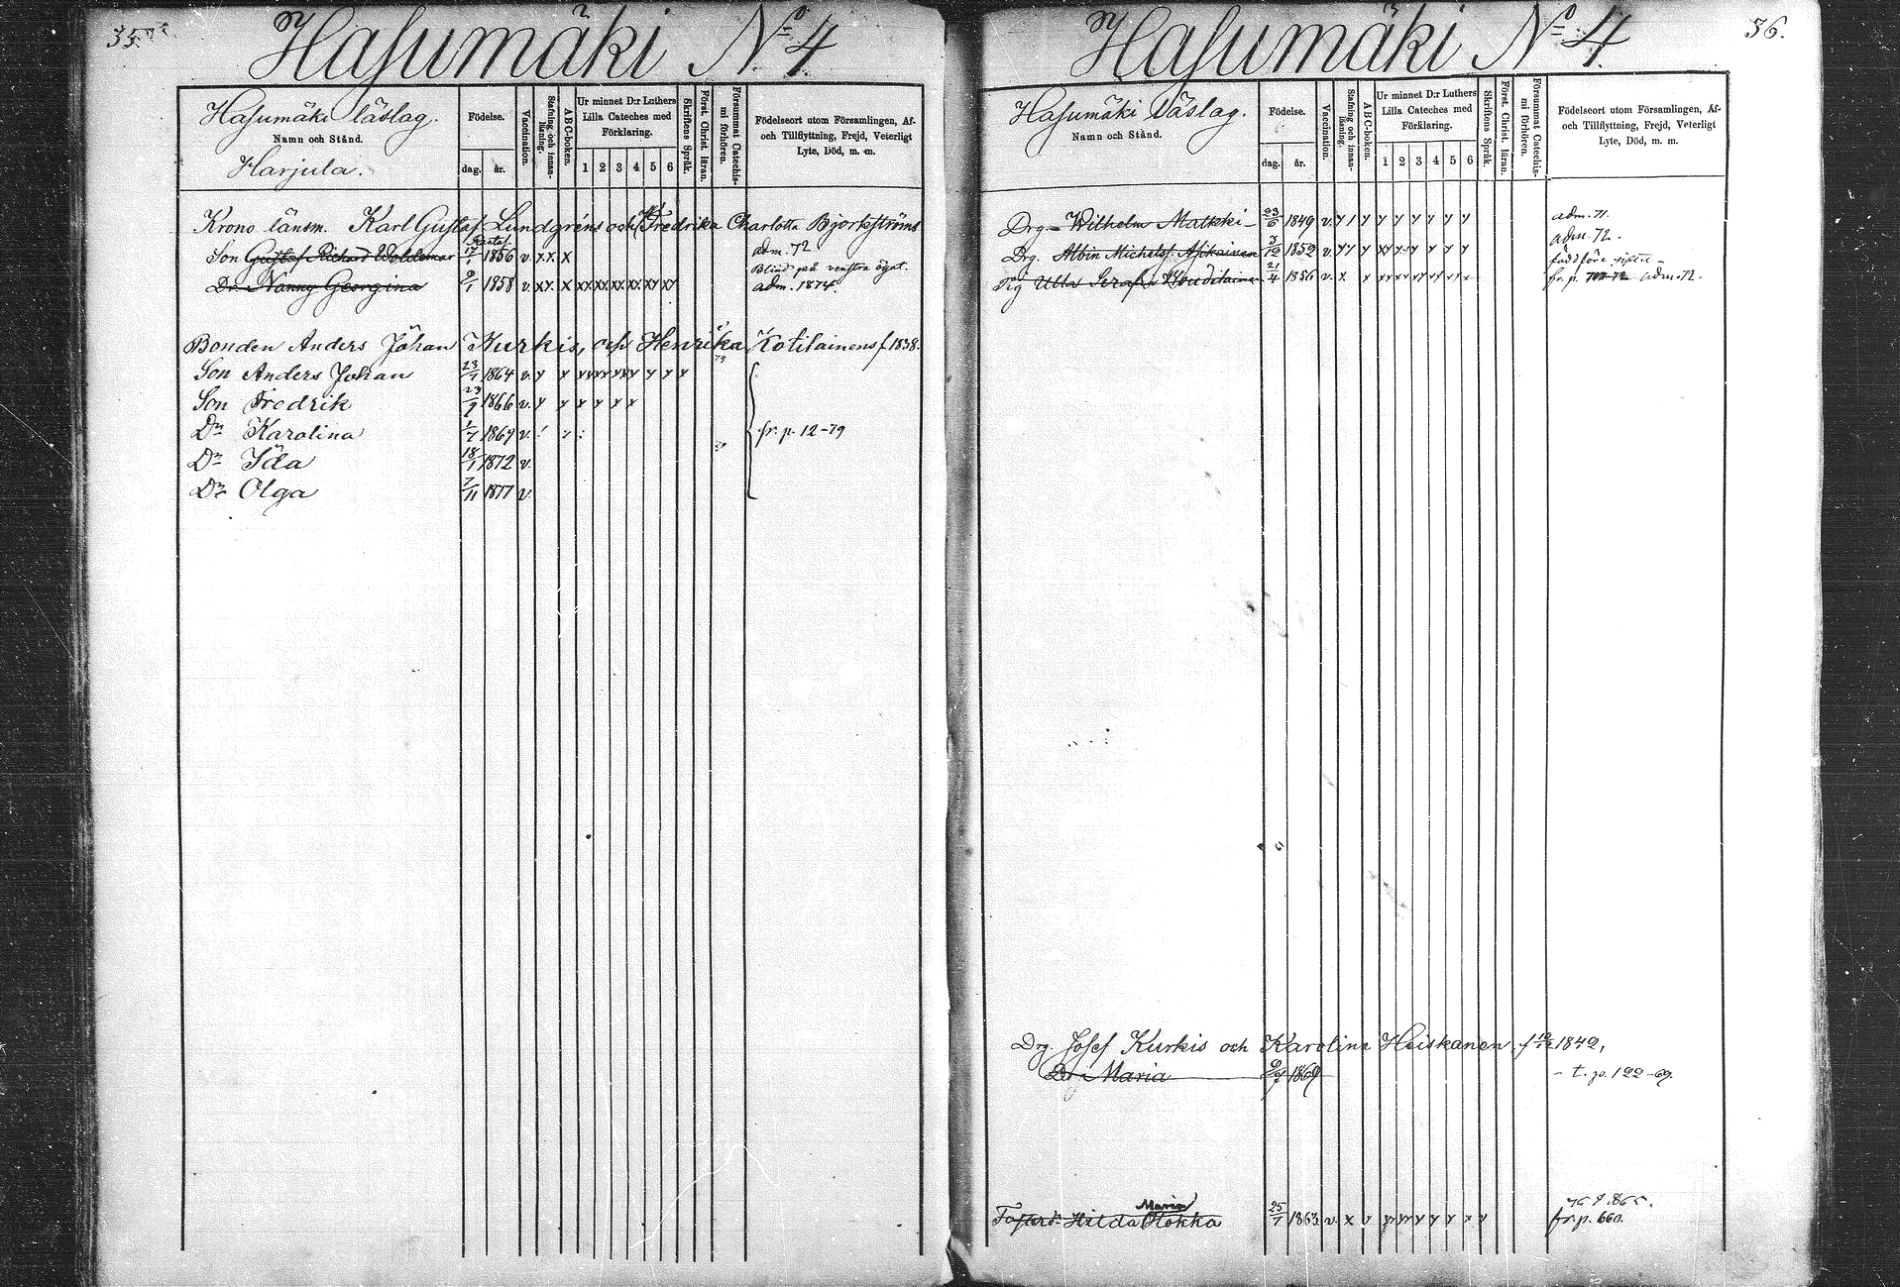 35.
Hasumäki No 4.
Hasumäki läslag.
Namn och Stånd.
Harjula.
Födelse.
dag. år.
Vaccination.
Stafning och innanläsning.
ABC-boken.
Ur minnet D:r Luthers
Lilla Cateches med
Förklaring.
1 2 3 4 5 6
Skriftens Språk.
Först. Christ. läran.
Försummat Catechismi förhören.
Födelseort utom Församlingen, Af-
och Tillflyttning, Frejd, Veterligt
Lyte, Död, m. m.
Krono länsm. Karl Gustaf Lundgréns och Fredrika Charlotta Björkströms
Son Gustaf Richard Woldemar 17/1 1856 v. x.x. x adm. 72
Blind på venstra ögat.
Dr. Nanny Georgina 9/1 1858 v. xy. x xx xx xx xx xy xy adm. 1874.
Bonden Anders Johan Kurkis, och Henrika Kotilainens f. 1838.
Son Anders Johan 23/1 1864 v. y x
Son Fredrik 23/9 1866 v. y x x y x x
Dr Karolina 1/7 1869 v. fr. p. 12-79
Dr Ida 18/1 1872 v.
Dr Olga 7/11 1877 v.
36.
Hasumäki No 4.
Hasumäki Läslag.
Namn och Stånd.
Födelse.
dag. år.
Vaccination.
Stafning och innanläsning.
ABC-boken.
Ur minnet D:r Luthers
Lilla Cateches med
Förklaring.
1 2 3 4 5 6
Skriftens Språk.
Först. Christ. läran.
Försummat Catechismi förhören.
Födelseort utom Församlingen, Af-
och Tillflyttning, Frejd, Veterligt
Lyte, Död, m. m.
Drg. Wilhelm Matkki 23/6 1849 v. y 1 y y y y y y y adm. 71.
Drg. Albin Michelsf. Asikainen 3/12 1852 v. yy y adm. 72.
född före
Pig Ulla Serafia 21/4 1856 v. x x fr. p. adm 72.
Drg. Josef Kurkis och Karolina Heiskanen f. 1842,
Dr Maria 9/7 1869 - t. p. 122-69.
Maria
Hilda Hokka 25/1 1863. v. x y fr. p. 660.